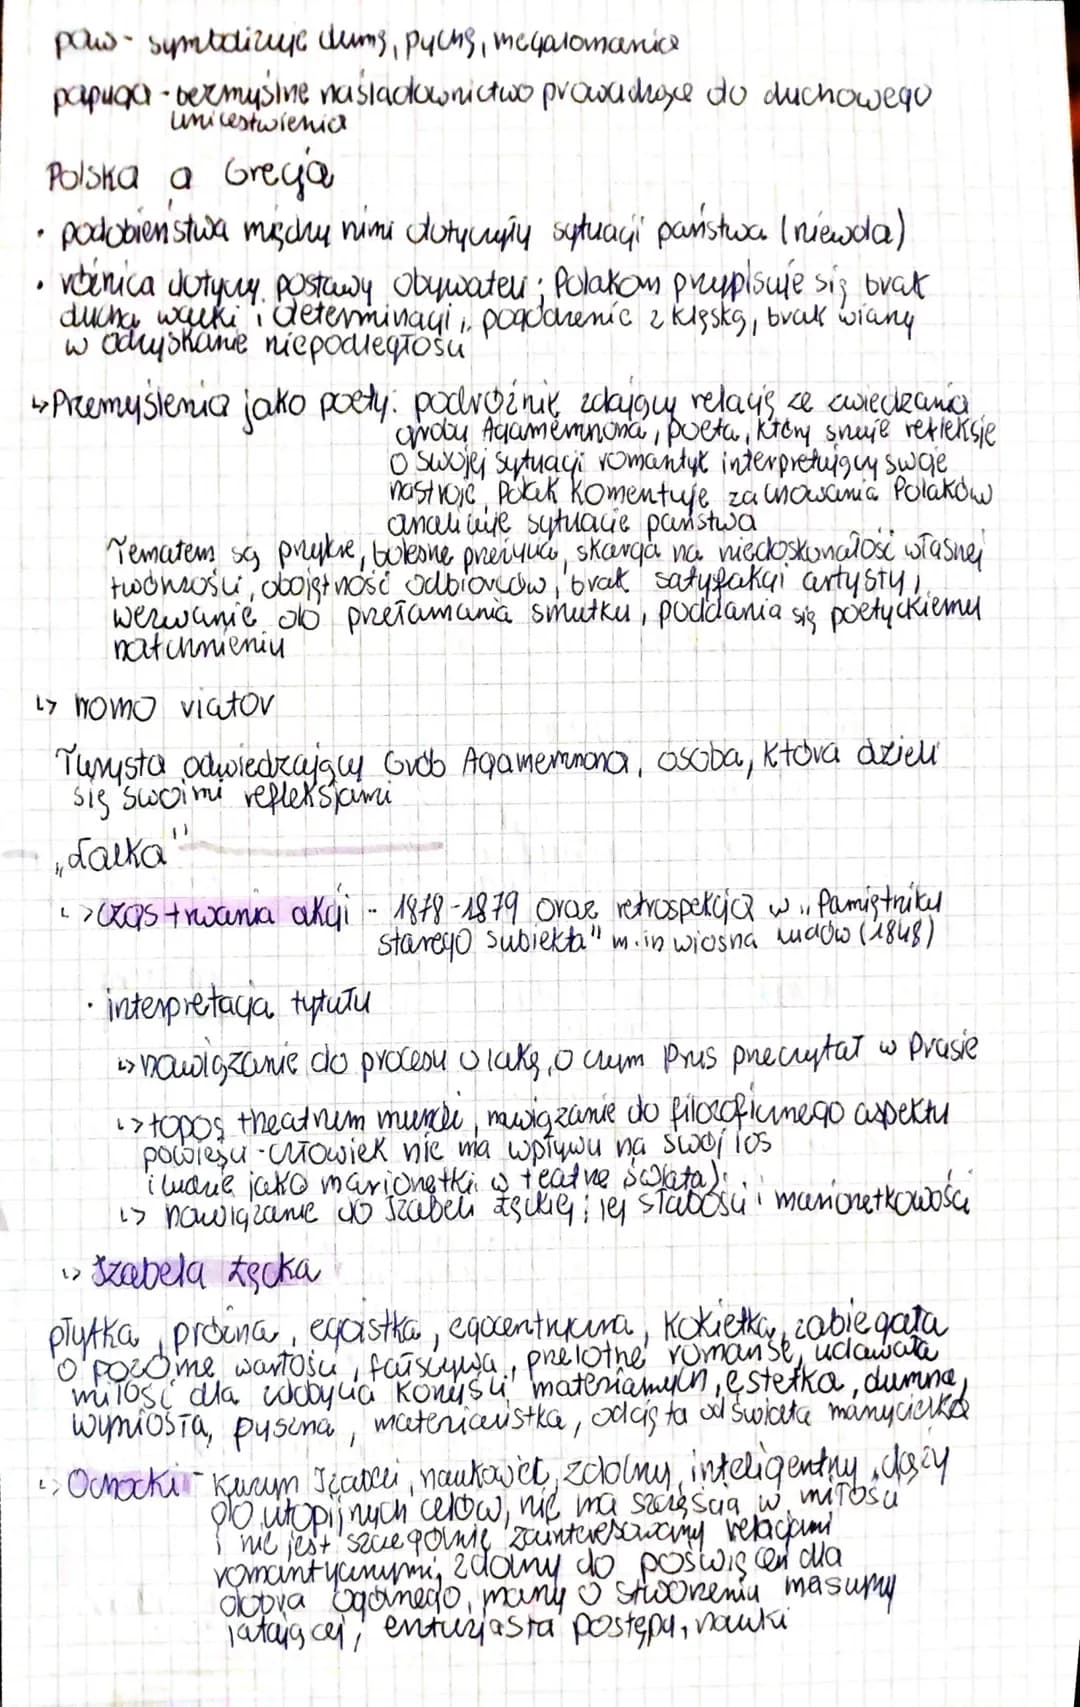 paw - symbolizuje dumę, pychę, megalomanię
papuga - bezmyślne naśladownictwo prowadzące do duchowego
unicestwienia
Polska a Grecja
• podobieństwa między nimi dotyczyły sytuacji państwa (niewola)
• różnica dotyczy postawy obywateli; Polakom przypisuje się brak
ducha walki i determinacji, pogodzenie z klęską, brak wiary
w odzyskanie niepodległości
↳ Przemyślenia jako poety: podróżnik zdający relację ze zwiedzania
groby Agamemnona, poeta, który snuje refleksje
o swojej sytuacji romantyk interpretujący swoje
nastroje, Polak komentuje zachowania Polaków
analizuje sytuacje państwa
Tematem są przykre, bolesne przeżycia, skarga na niedoskonałość własnej
twórczości, obojętność odbiorców, brak satysfakcji artysty,
wezwanie do przełamania smutku, poddania się poetyckiemu
natchnieniu
↳ homo viator
Turysta odwiedzający Grób Agamemnona, osoba, która dzieli
się swoimi refleksjami
„Lalka"
↳ czas trwania akcji - 1878-1879 oraz retrospekcja w „Pamiętniku
starego subiekta" m.in wiosna ludów (1848)
• interpretacja tytułu
↳ nawiązanie do procesu o lalkę, o czym Prus przeczytał w Prasie
↳ topos theatrum mundi, nawiązanie do filozoficznego aspektu
powieści - człowiek nie ma wpływu na swój los
i ludzie jako marionetki w teatrze świata);
↳ nawiązanie do Izabeli Łęckiej; jej słabości i marionetkowości
↳ Izabela Łęcka
płytka, próżna, egoistka, egocentryczna, kokietka, zabiegała
o pozorne wartości, fałszywa, przelotne romanse, udawała
miłość dla zdobycia korzyści materialnych, estetka, dumna,
wyniosła, pyszna, materialistka, odcięta od świata marzycielka
↳ Ochocki - kuzyn Izabeli, naukowiec, zdolny, inteligentny, dąży
do utopijnych celów, nie ma szczęścia w miłości
i nie jest szczególnie zainteresowany relacjami
romantycznymi, zdolny do poświęceń dla
dobra ogólnego, marzy o stworzeniu maszyny
latającej, entuzjasta postępu, nauki